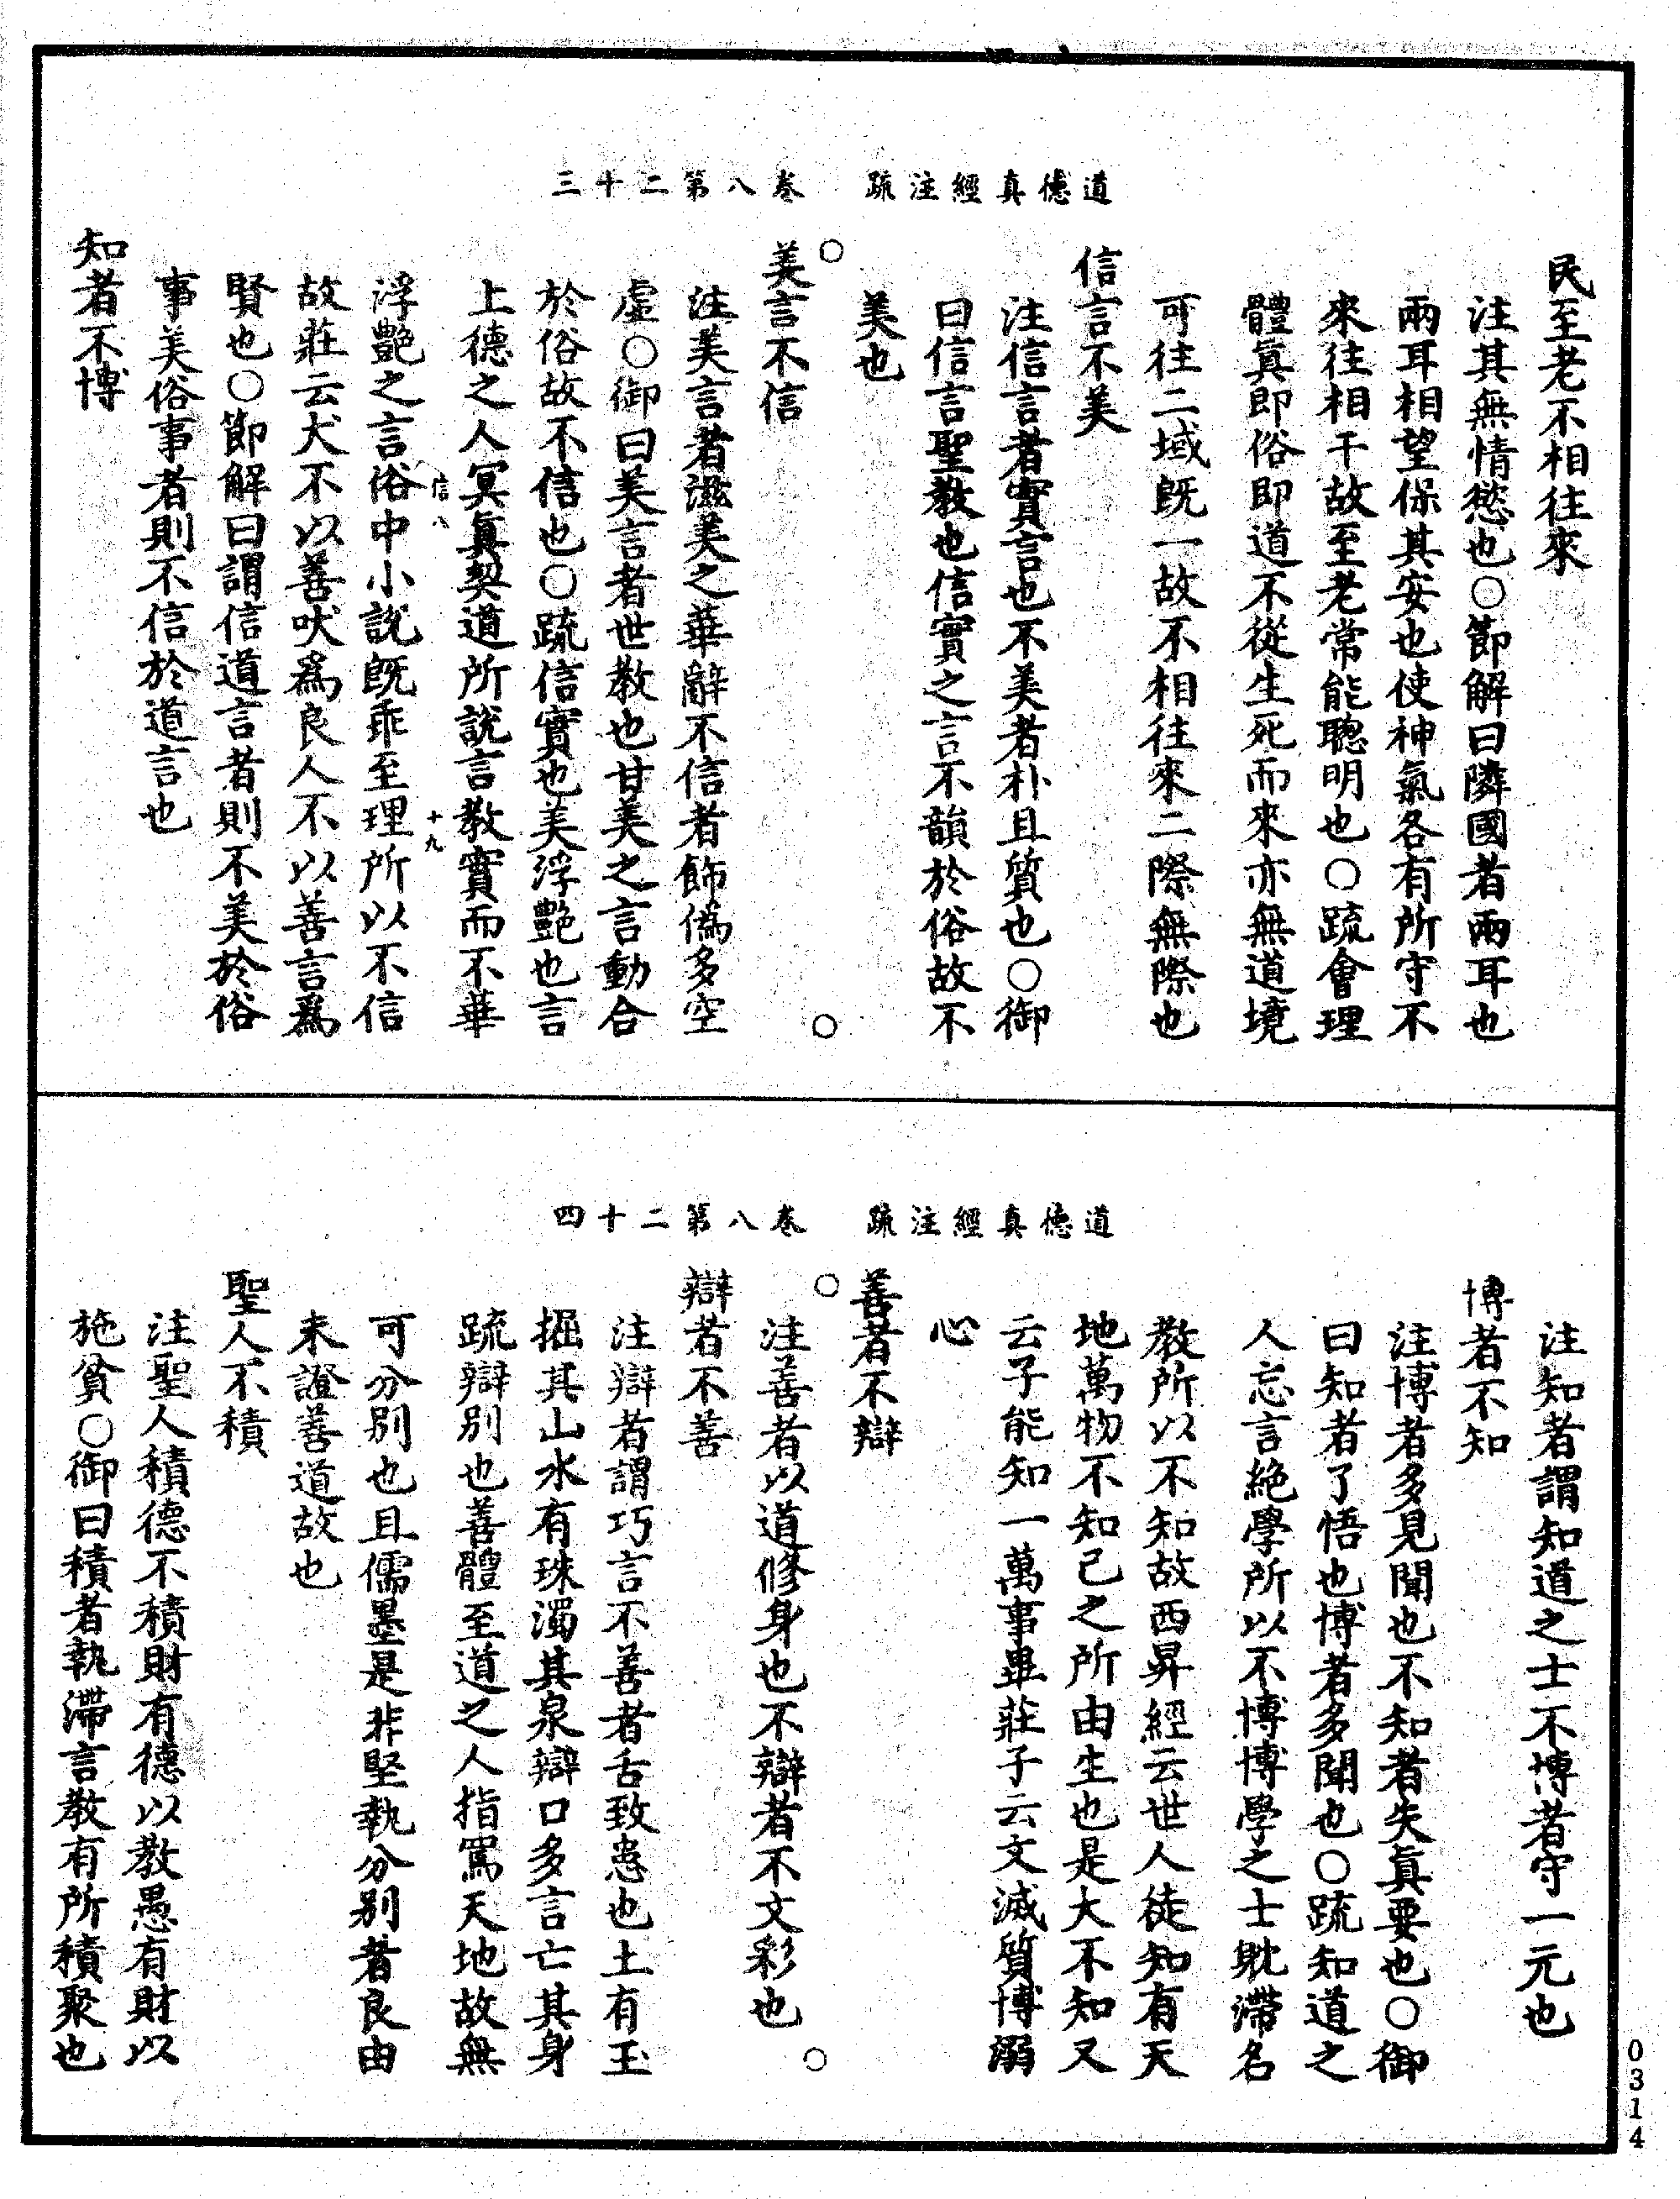 道德真經注疏　卷八第二十三
民至老不相往來
注其無情慾也○節解曰隣國者兩耳也
兩耳相望保其安也使神氣各有所守不
來往相干故至老常能聰明也○疏會理
體眞即俗即道不從生死而來亦無道境
可往二域既一故不相往來二際無際也
信言不美
注信言者實言也不美者朴且質也○御
曰信言聖教也信實之言不韻於俗故不
美也
○　○
美言不信
注美言者滋美之華辭不信者飾僞多空
虛○御曰美言者世教也甘美之言動合
於俗故不信也○疏信實也美浮艷也言
上德之人冥眞契道所說言教實而不華
信八　十九
浮艷之言俗中小說既乖至理所以不信
故莊云犬不以善吠爲良人不以善言爲
賢也○節解曰謂信道言者則不美於俗
事美俗事者則不信於道言也
知者不博
道德真經注疏　卷八第二十四
注知者謂知道之士不博者守一元也
博者不知
注博者多見聞也不知者失眞要也○御
曰知者了悟也博者多聞也○疏知道之
人忘言絕學所以不博博學之士耽滯名
教所以不知故西昇經云世人徒知有天
地萬物不知己之所由生也是大不知又
云子能知一萬事畢莊子云文滅質博溺
心
善者不辯
○　○
注善者以道修身也不辯者不文彩也
辯者不善
注辯者謂巧言不善者舌致患也土有玉
掘其山水有珠濁其泉辯口多言亡其身
疏辯別也善體至道之人指罵天地故無
可分別也且儒墨是非堅執分別者良由
未證善道故也
聖人不積
注聖人積德不積財有德以教愚有財以
施貧○御曰積者執滯言教有所積聚也
0314